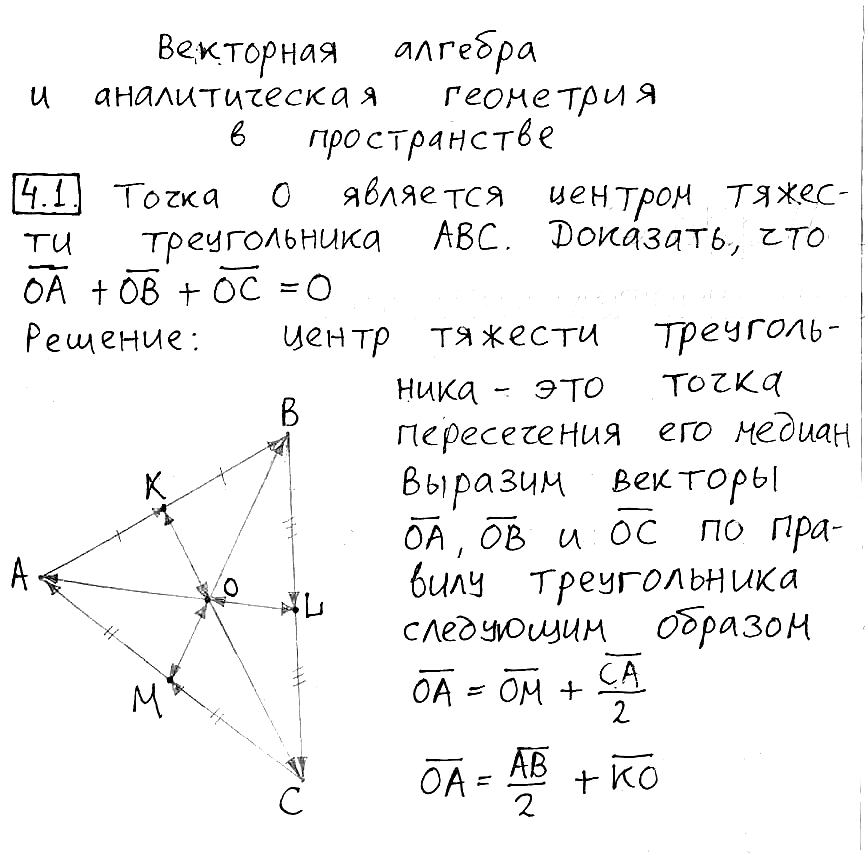 Векторная алгебра
и аналитическая геометрия
в пространстве
4.1. Точка О является центром тяжес-
ти треугольника АВС. Доказать, что
O̅A̅ + O̅B̅ + O̅C̅ = 0
Решение: центр тяжести треуголь-
ника - это точка
пересечения его медиан
Выразим векторы
O̅A̅, O̅B̅ и O̅C̅ по пра-
вилу треугольника
следующим образом
O̅A̅ = O̅M̅ + C̅A̅/2
O̅A̅ = A̅B̅/2 + K̅O̅
B
K
A
O
M
C